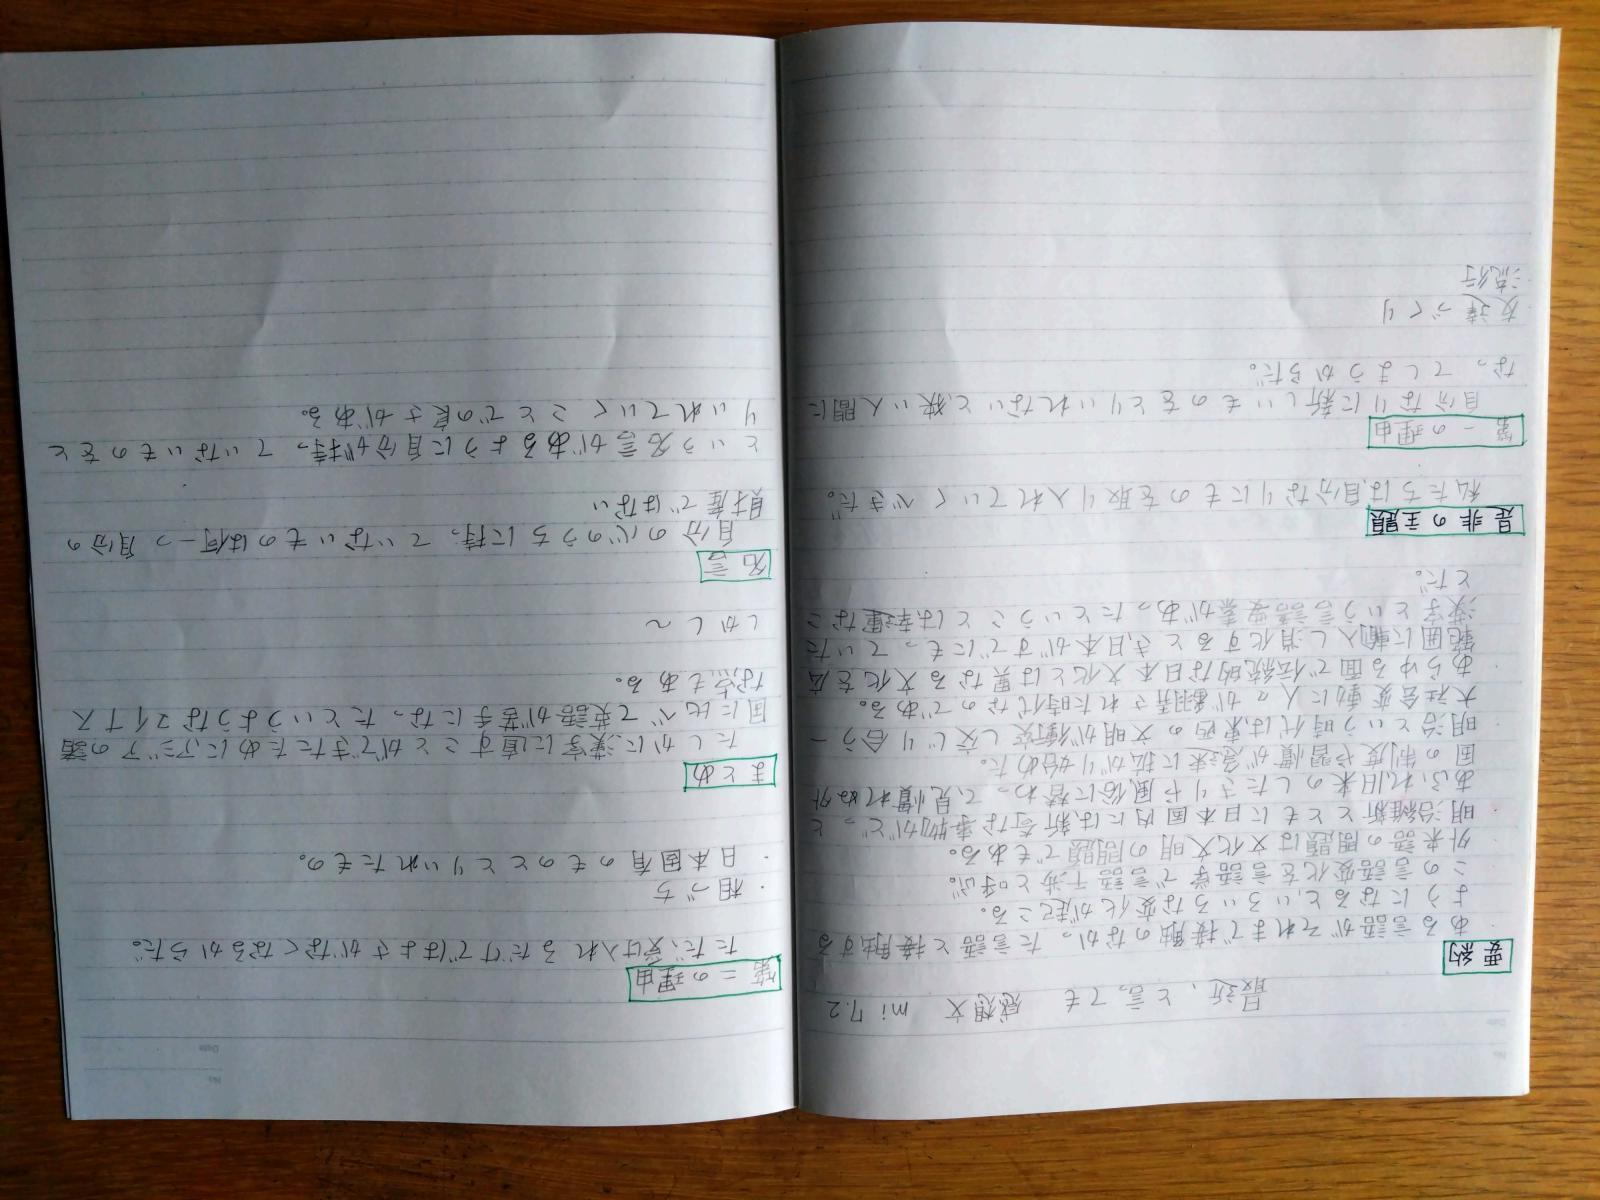 最近、と言っても 感想文 mi 7.2
要約
ある言語がそれまで接触のなかった言語と接触する
ようになるといろいろな変化が起こる。
この言語変化を言語学で言語干渉と呼ぶ。
外来語の問題は文化文明の問題でもある。
明治維新とともに日本国内には、新奇な事物がどっと
あふれ、旧来のしきたりや風俗に替わって、見慣れぬ外
国の制度や習慣が急速に拡がり始めた。
明治という時代は、東西の文明が衝突し交じり合う一
大社会変動に人々が翻弄された時代なのである。
あらゆる面で伝統的な日本文化とは異なる文化を広
範囲に輸入し消化するとき、日本がすでにもっていた
漢字という言語要素があったということは幸運なこ
とだ。
是非の主題
私たちは、自分なりにものを取り入れていくべきだ。
第一の理由
自分なりに新しいものをとりいれないと、狭い人間に
なってしまうからだ。
友達づくり
流行
No.
Date
第二の理由
ただ、受け入れるだけではよさがなくなるからだ。
・相づち
・日本固有のものととりいれたもの。
まとめ
たしかに、漢字に直すことができたために、アジアの諸
国に比べて英語が苦手になったというようなマイナス
な点もある。
しかし~
名言
自分の心のうちに持っていないものは何一つ自分の
財産ではない
という名言があるように自分が持っていないものをと
りいれていくことでの良さがある。